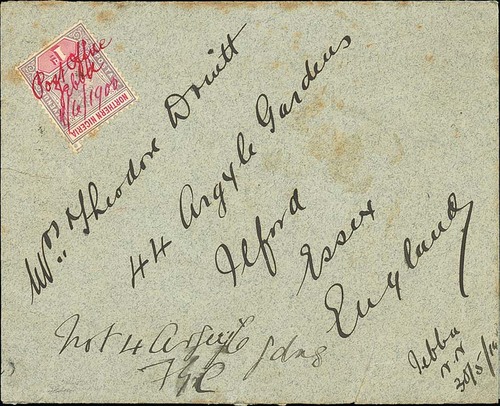 Post Office
Jebba
1/6/1900
NORTHERN NIGERIA
Mrs. Theodore Druitt
44 Argyle Gardens
Ilford
Essex
England
Not 4 Argyle Gdns
Jebba
N.N
30/5/